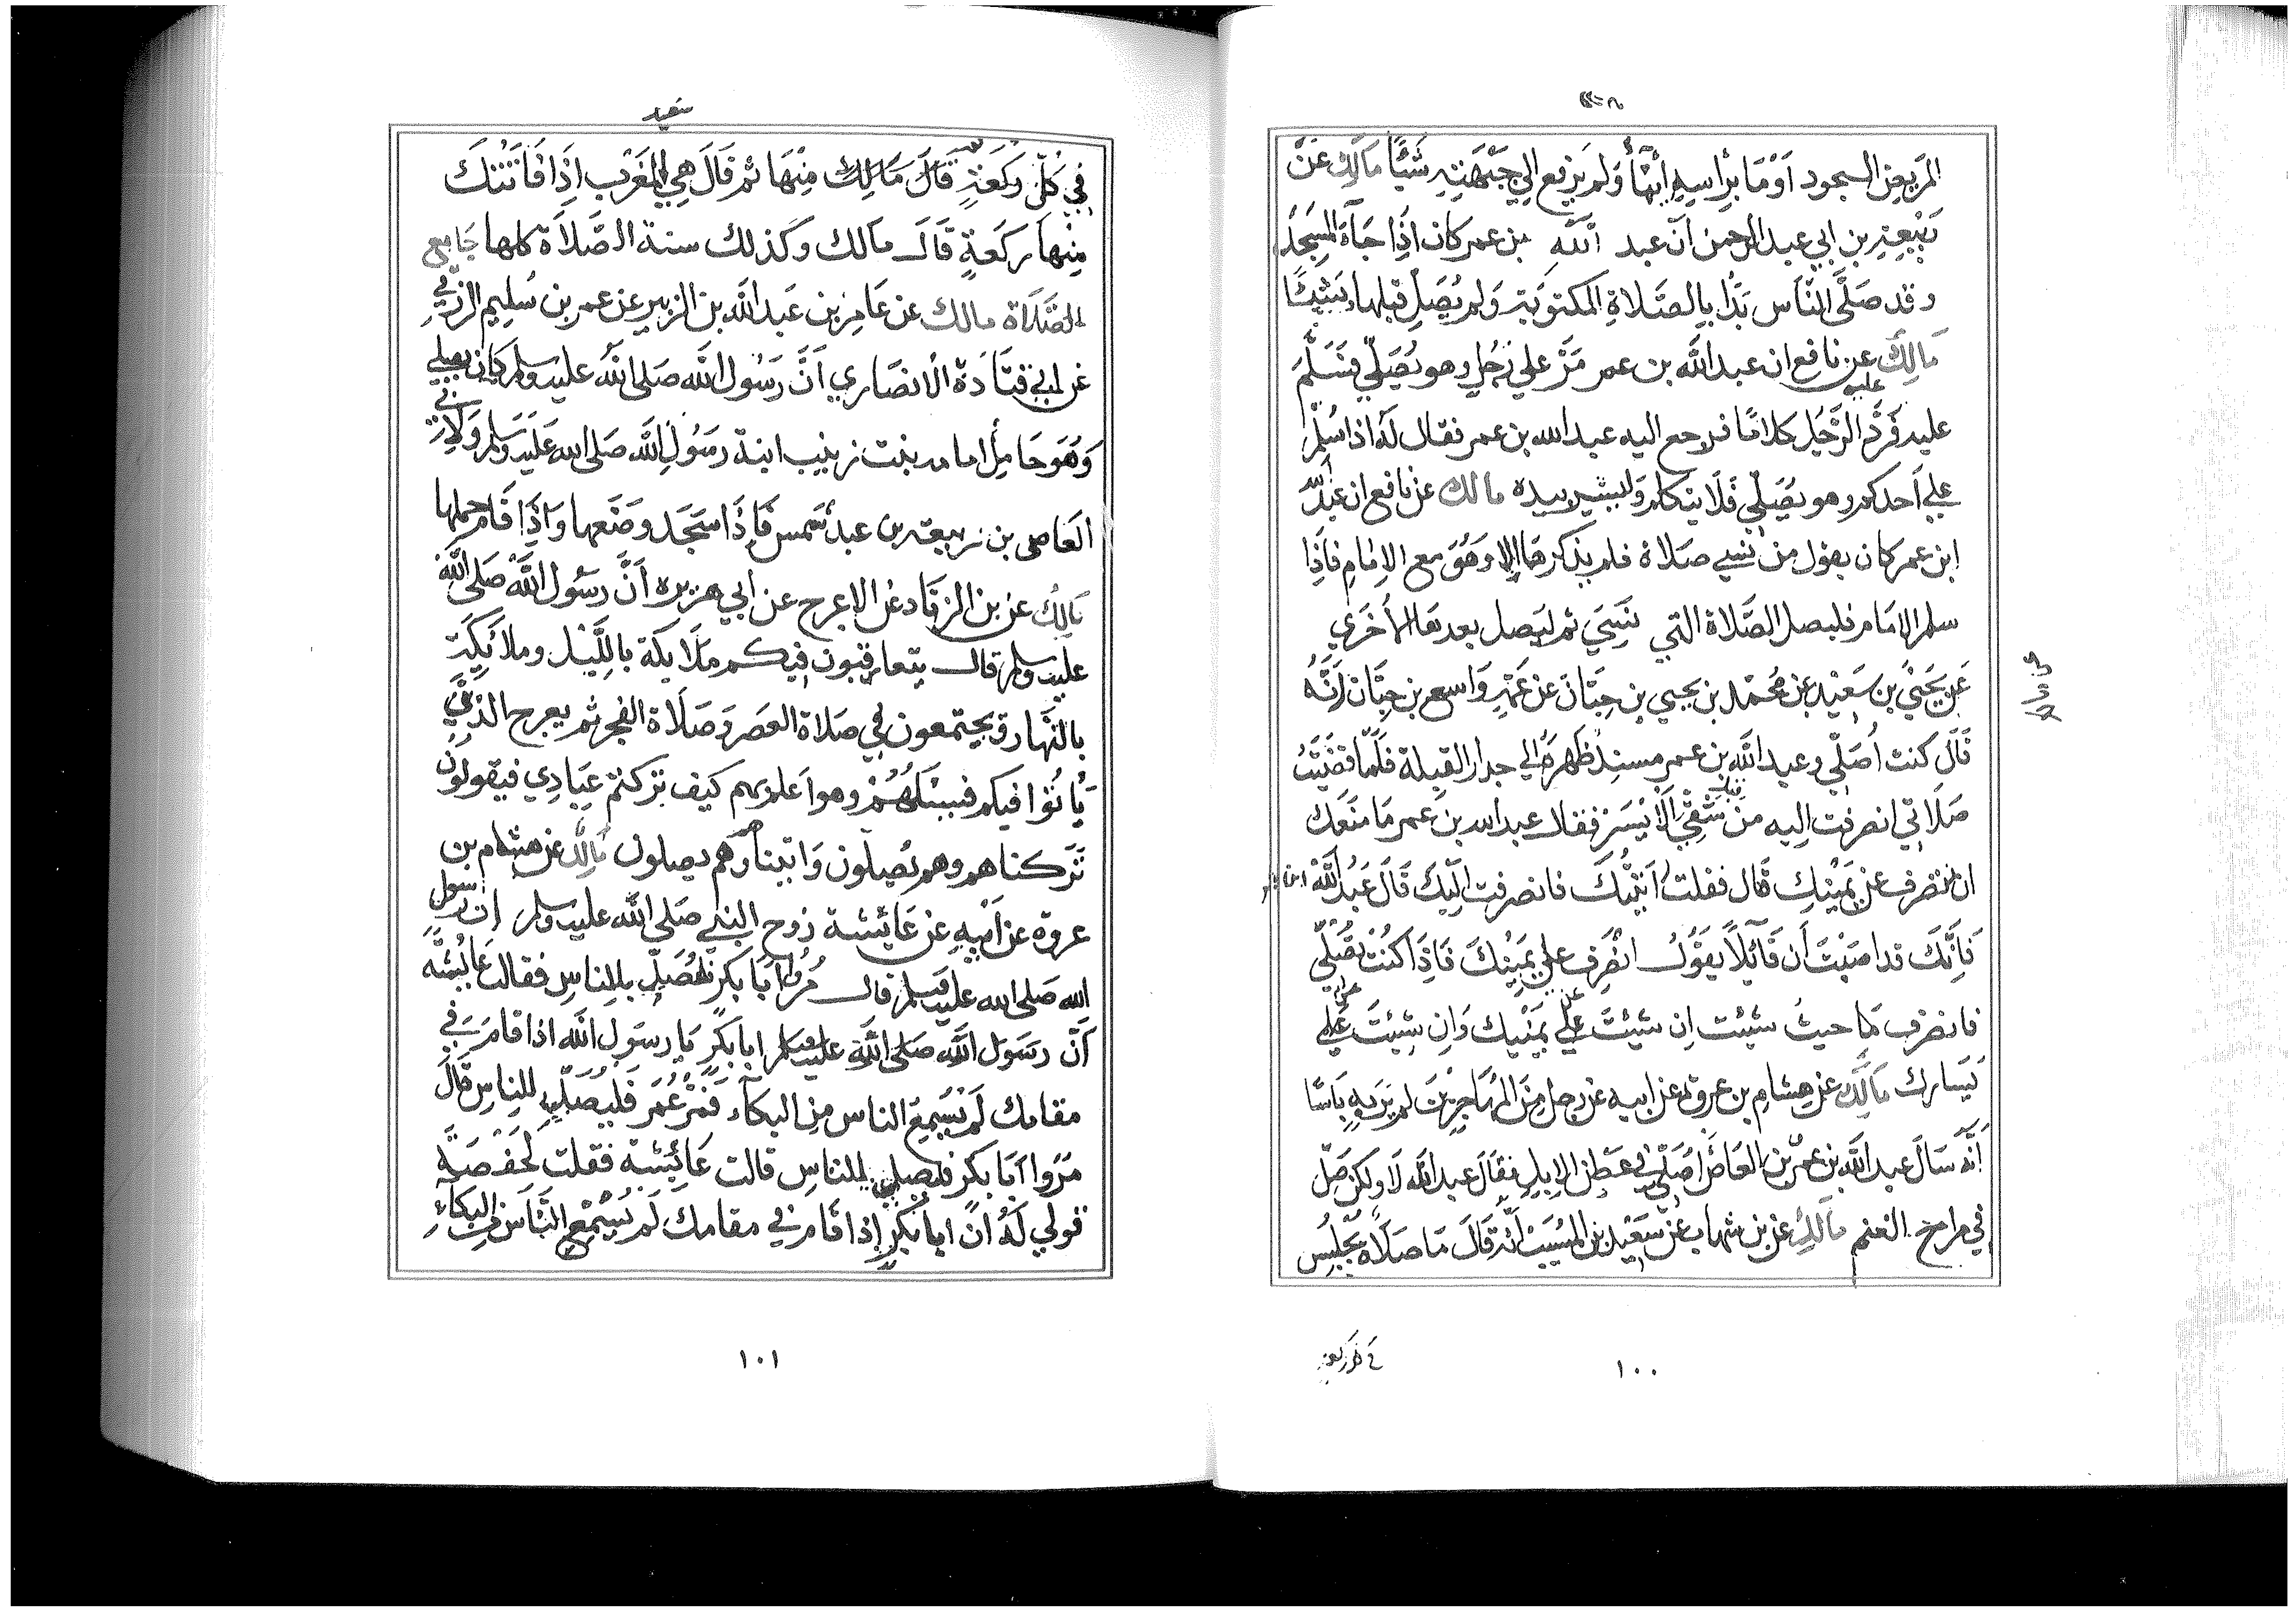 المريض السجود أومَا برأسِهِ إيمَاءً وَلم يَرفع إلي جَبْهَتِهِ شَيئًا مَالك عَنْ
رَبيعَةِ بن ابي عبد الرحمن أنّ عبد الله بن عمر كان إذَا جَآءَ المسجدَ
وقد صَلَّى النَّاس بَدَا بِالصَّلاةِ المكتوبَةِ وَلم يُصَلِّ قبلها شيئًا
مَالِكٌ عن نافع ان عبد الله بن عمر مَرَّ علي رَجُلٍ وهو يُصَلِّي فَسَلَّمَ
عليه فَرَدَّ الرَّجُل كلامًا فرجع اليه عبد الله بن عمر فقال لَه اذا سُلِّمَ
علي أحدكم وهو يُصَلِّي فَلَا يتكلم وَليشير بيده مالك عن نافع ان عَبْد اللَّه
ابن عمر كان يقول من نسي صَلاة فلم يذكرهَا إلا وَهُوَ مع الإمَامِ فاذا
سلم الإمَام فليصل الصَّلاة التي نَسِيَ ثم ليَصل بعدهَا الأخرَي
عَن يَحيَى بن سَعيد عن مُحَمَّد بن يحيي بن حِبَّانَ عن عَمِّهِ وَاسع بن حِبَّان أنَّهُ
قَال كنت أُصَلّي وعبد اللَّه بن عمر مسندٌ ظهرَهُ إلي جدار القبلة فلمّا قضَيْتُ
صَلَاتي انصرفت اليه من شقِّي الأيْسَر فقال عبد الله بن عمر مَا منَعَك
ان تنصرف عن يَمينكِ قَال فقلت رَأيتُكَ فانصرفت إلَيْكَ قَالَ عَبْدُ اللَّه
فَإنَّكَ قد اصَبْتَ أن قَآئِلًا يَقُولُ انْصَرِف علي يَمينكَ فَإذَا كُنْتَ تُصَلّي
فانصرف حيث شيئت إن شيئتَ علي يَمينِك وَان شِيئتَ عَلي
يَسارك مَالِك عن هِشامِ بن عروة عن ابيه عن رجل مِنَ المُهَاجرِينَ لم يَرَ بِهِ بَاسًا
أنَّه سَالَ عبد اللَّه بن عمر بن العَاص أُصَلّي في عَطن الإبلِ فقال عبد الله لَا ولكن صَلّ
في مراح الغنم مَالكٌ عن بن شهاب عن سَعيد بن المُسَيب أنّه قَالَ مَا صَلَاة يُجْلِسُ
١٠٠
سَعيد
في كُلّ رَكعَةٍ قَالَ مَالِك مِنْهَا ثم قَالَ هِيَ المَغرِب إِذَا فَاتَتْكَ
مِنها رَكعَةٍ قَالَ مالك وَكذلك سنة الصَّلاة كلها جَامع
الصَّلاة مالك عن عَامِر بن عَبد الله بن الزبير عن عمر بن سُليم الزرقي
عن أبي قتَادَة الأنصَاري أنَّ رَسُول الله صَلى الله عليه وسلم كان يصلي
وَهُوَ حَامِل امامه بنت زينب ابنة رَسُول الله صَلى الله عَليه وَسلم وَلأبي
العَاصي بن ربيعة بن عبد شمس فَإذَا سَجَد وضَعها وَاذا قَام حملها
مَالِكٌ عن بن الزناد عن الاعرج عن ابي هريره أنَّ رسُول الله صَلى الله
عليه وسلم قال يتعاقبون فيكم مَلَايكة بالليل وملائكة
بالنَّهار ويجتمعون في صلاة العَصر وَصَلَاة الفجر ثم يعرج الذين
بَاتُوا فيكم فيسئلهُمْ وهو أعلم بهم كيف تركتم عِبَادِي فيقولون
تَرَكناهم وهم يُصلون وَاتيناهم وهم يصلون مَالك عن هشام بن
عروة عن أبيهِ عن عَائشة زوج النبي صَلى الله عليه وسلم ان رسول
الله صَلى الله عليه وسلم قال مُروا أبَا بَكر فليُصَلّي بالناسِ فقالت عَائِشَة
أنّ رسَول اللَّه صَلى الله عليه وسلم ابابكرٍ يا رسَول الله اذا قام في
مقامك لَم يُسْمِعِ الناس مِن البكآء فَمُرْ عُمَر فَليُصَلِّي للناس قَالَ
مُرُوا أبَا بكر فليصلي للناس قالت عَائِشة فقلت لحَفْصَة
قولي لَهُ انّ ابا بكرٍ إذا قام في مقامك لم يُسْمِعِ النّاسَ من البكاءِ
١٠١